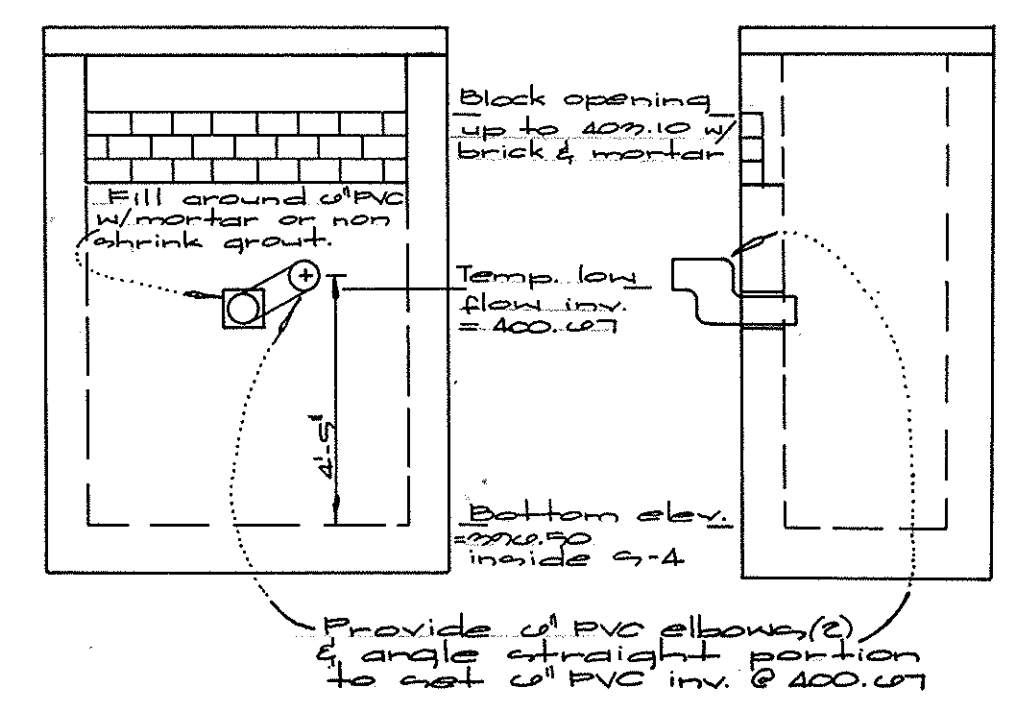 Block opening
up to 403.10 w/
brick & mortar
Fill around 6" PVC
w/mortar or non
shrink grout.
Temp. low
flow inv.
= 400.67
4'-5"
Bottom elev.
=396.50
inside S-4
Provide 6" PVC elbows(2)
& angle straight portion
to set 6" PVC inv. @ 400.67